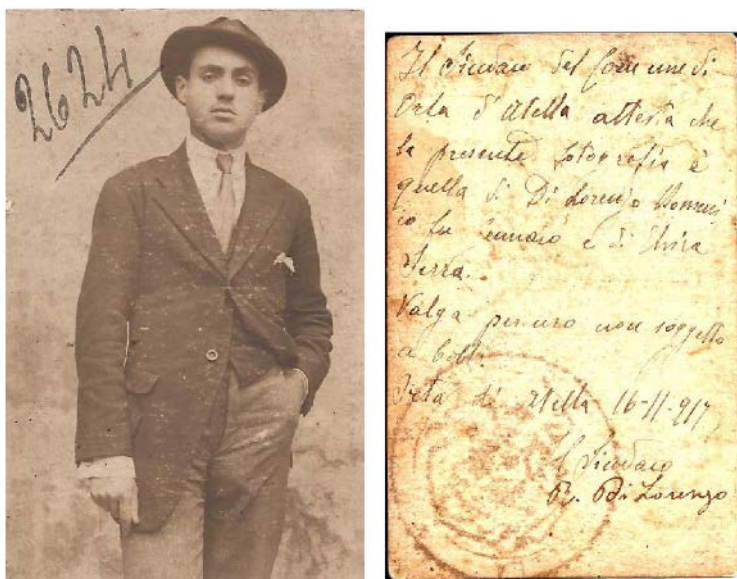 2624
Il Sindaco del Comune di
Orta d'Atella attesta che
la presente fotografia è
quella di Di Lorenzo Domeni
co fu e di
Serra.
Valga per uso non soggetto
a bollo.
Orta di Atella 16-11-917
Il Sindaco
R. Di Lorenzo